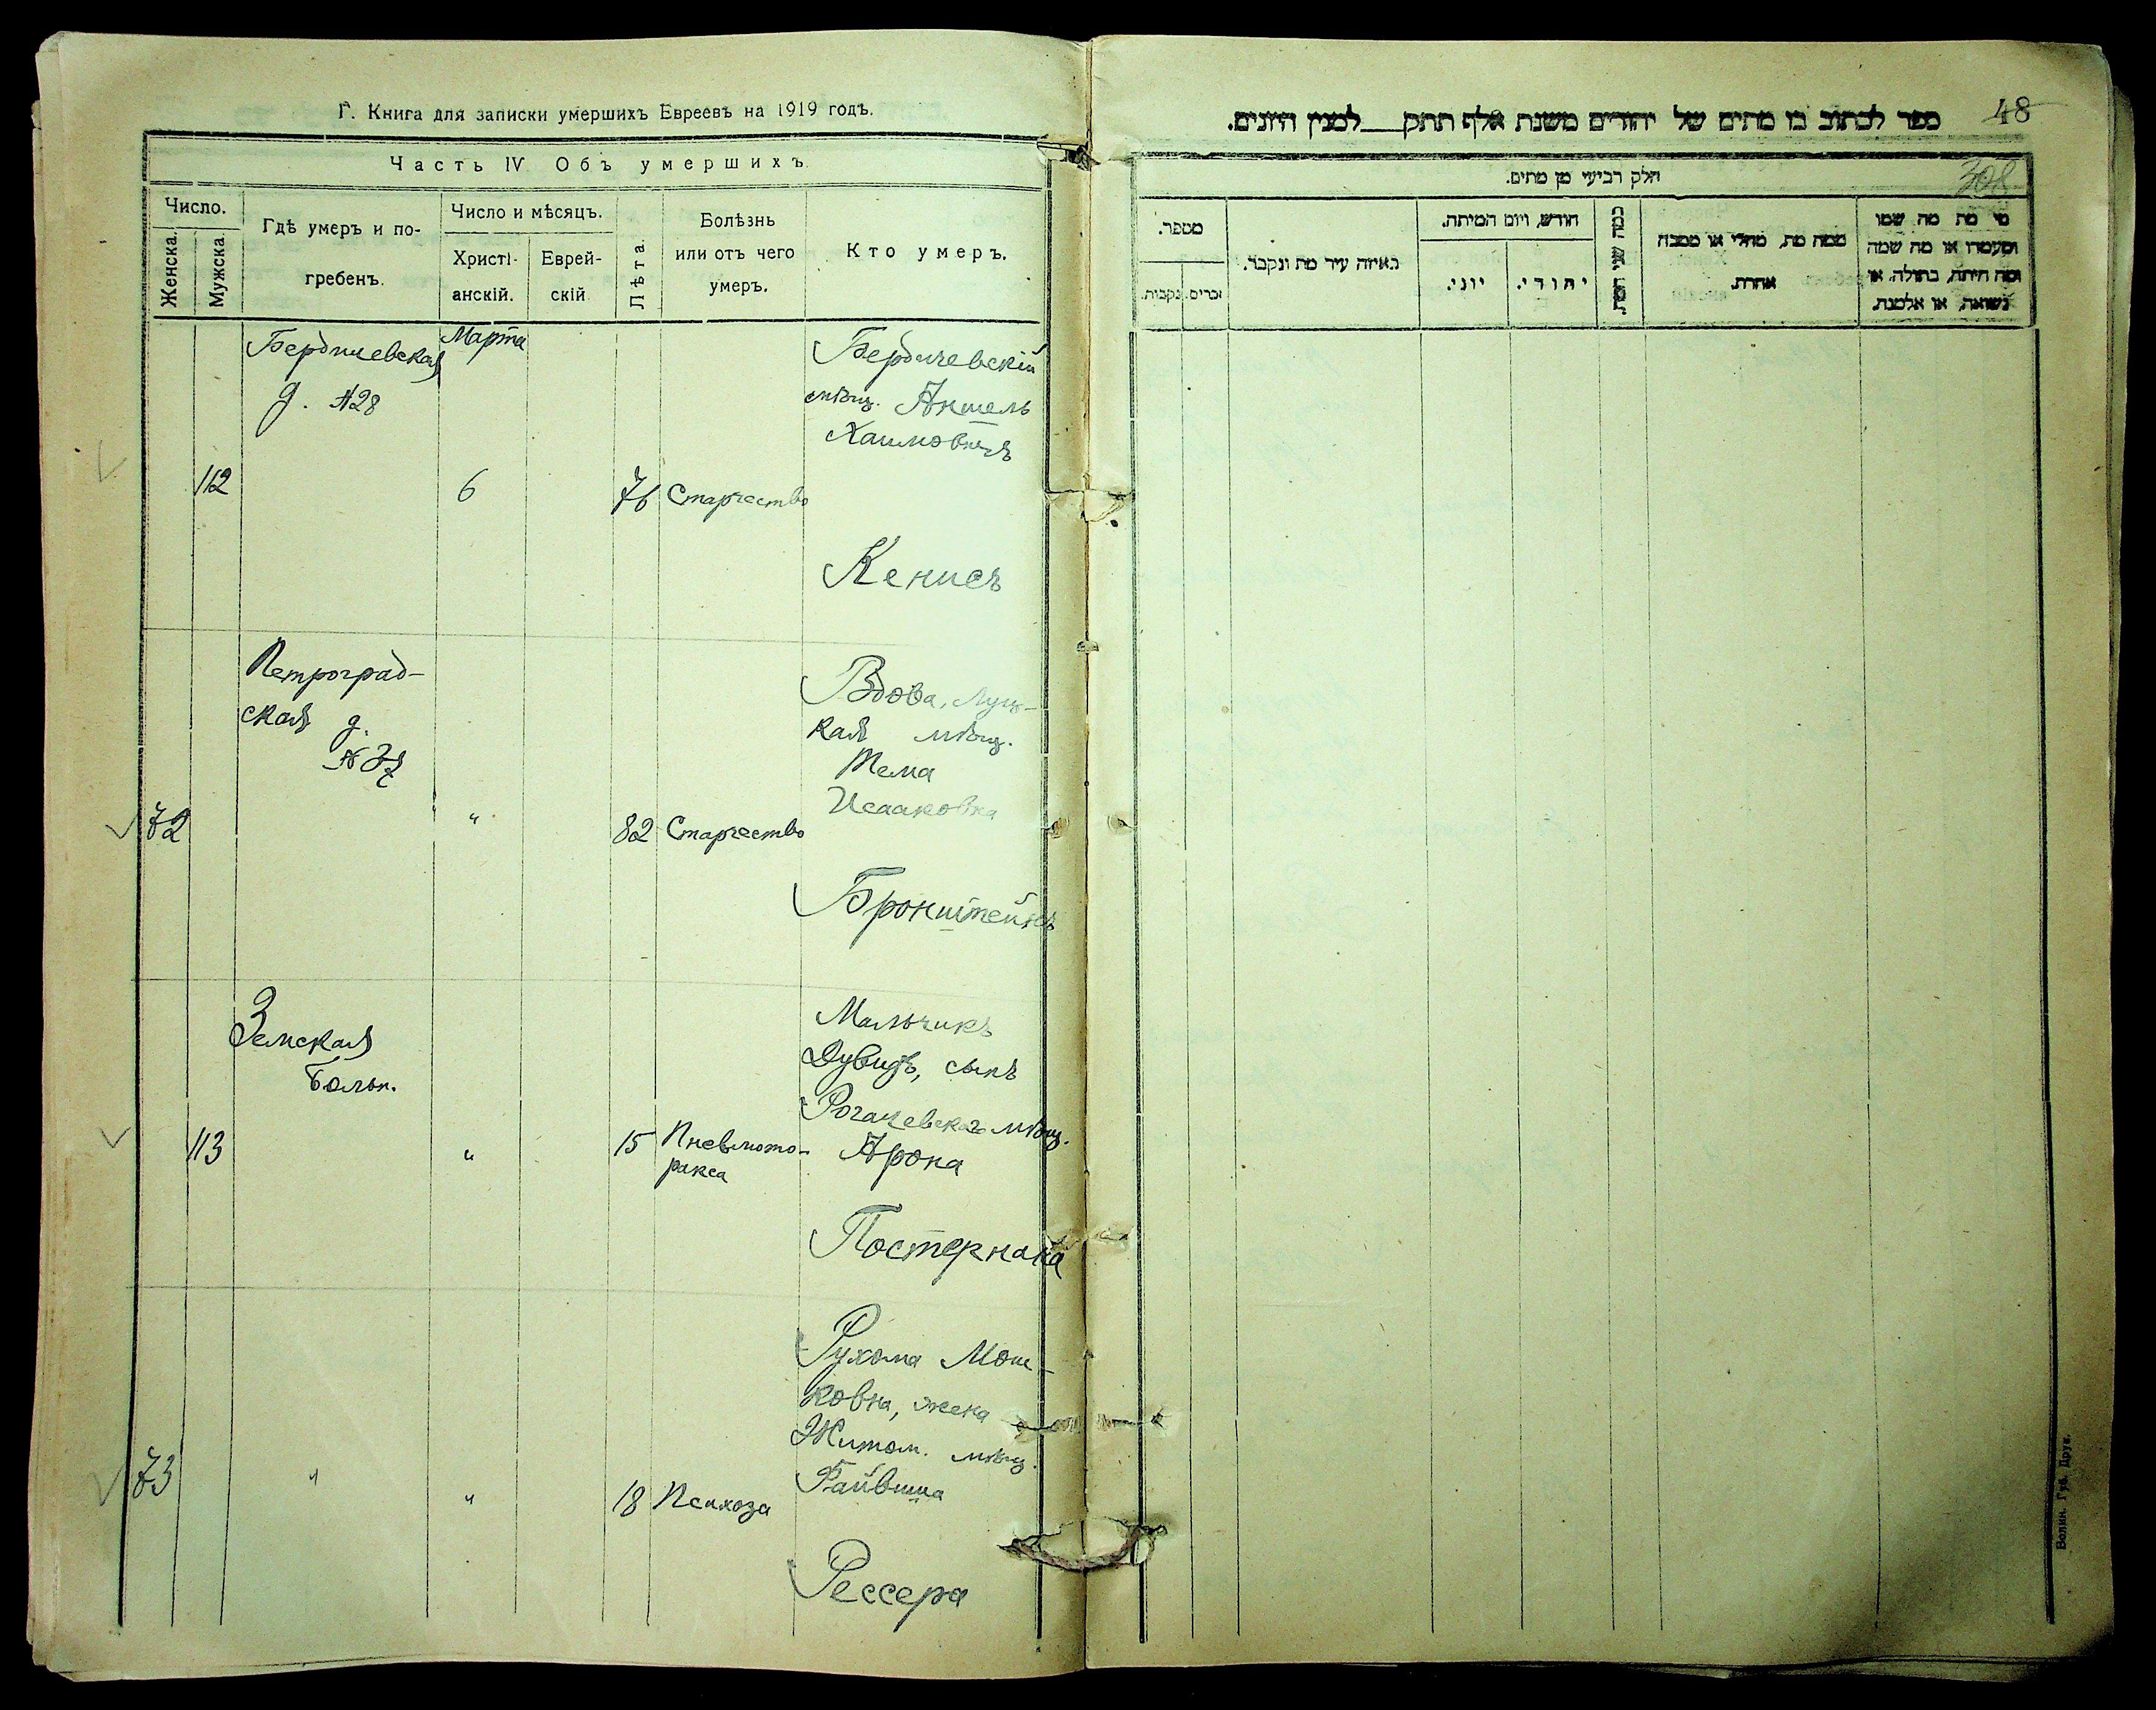 Г. Книга для записки умершихъ Евреевъ на 1919 годъ.
Часть IV Объ умершихъ
Число.
Женска.
Мужска
Гдѣ умеръ и по-
гребенъ.
Число и мѣсяцъ.
Христі-
анскій.
Еврей-
скій
Лѣта
Болѣзнь
или отъ чего
умеръ.
Кто умеръ.
112
Бердичевская
д. №28
Марта
6
76
Старчество
Бердичевскій
мѣщ. Аншель
Хаимовичъ
Кенисъ
72
Петроград-
ская д.
№37
"
82
Старчество
Вдова, Луц-
кая мѣщ.
Тема
Исааковна
Бронштейнъ
113
Земская
больн.
"
15
Пневмото-
ракса
Мальчикъ
Дувидъ, сынъ
Рогачевскаго мѣщ.
Арона
Постернака
73
"
"
18
Психоза
Рухома Мош-
ковна, жена
Житом. мѣщ.
Файвиша
Рессера
48
ספר לכתוב בו מתים של יהודים משנת אלף תתק למנין היונים.
308
חלק רביעי מן מתים.
מי מת מה שמו
ומעמדו או מה שמה
ומה היתה, בתולה, או
נשואה, או אלמנה.
ממה מת, מחלי או מסבה
אחרת.
כמה שני המת
חודש, ויום המיתה.
יהודי.
יוני.
באיזה עיר מת ונקבר.
מספר.
זכרים.
נקבות.
Волин. Губ. Друк.